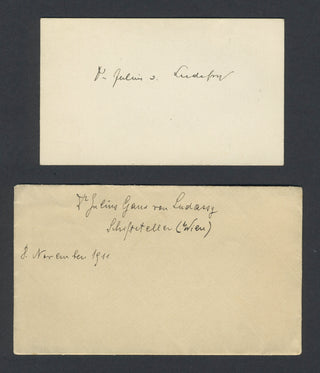 Dr Julius v. Ludassy
Dr Julius Gans von Ludassy
Schriftsteller (Wien)
8. November 1911